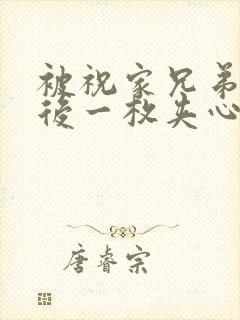 被祝家兄弟
後一枚失心
唐睿宗